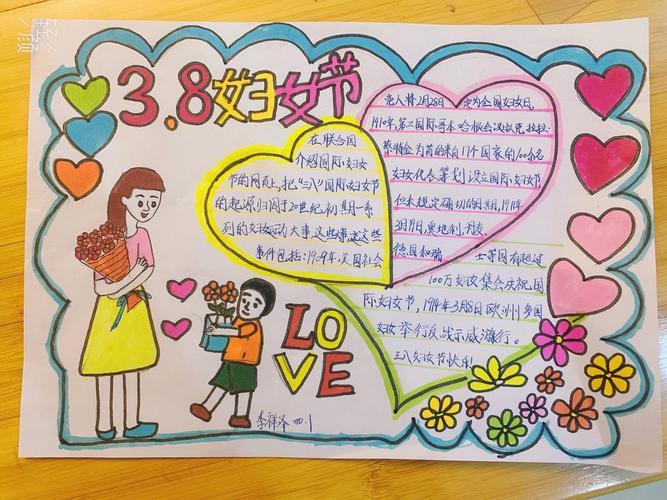 3.8妇女节
在联合国
介绍国际妇女
节的网页上,把"三八"国际妇女节
的起源归因于20世纪初期一系
列的妇女运动大事,这些事
事件包括:1909年,美国社会
党人将2月28日 定为全国妇女日,
1910年,第二国际哥本哈根会议以克拉拉·
蔡特金为首的来自17个国家的100余名
妇女代表筹划设立国际妇女节,
但未规定确切的日期,1911年
3月19日,奥地利、丹麦、
德国和瑞 士等国有超过
100万妇女集会庆祝国
际妇女节,1914年3月8日欧洲多国
妇女举行反战示威游行。
三八妇女节快乐!
LO
VE
李祥泽 四.1
轻颜